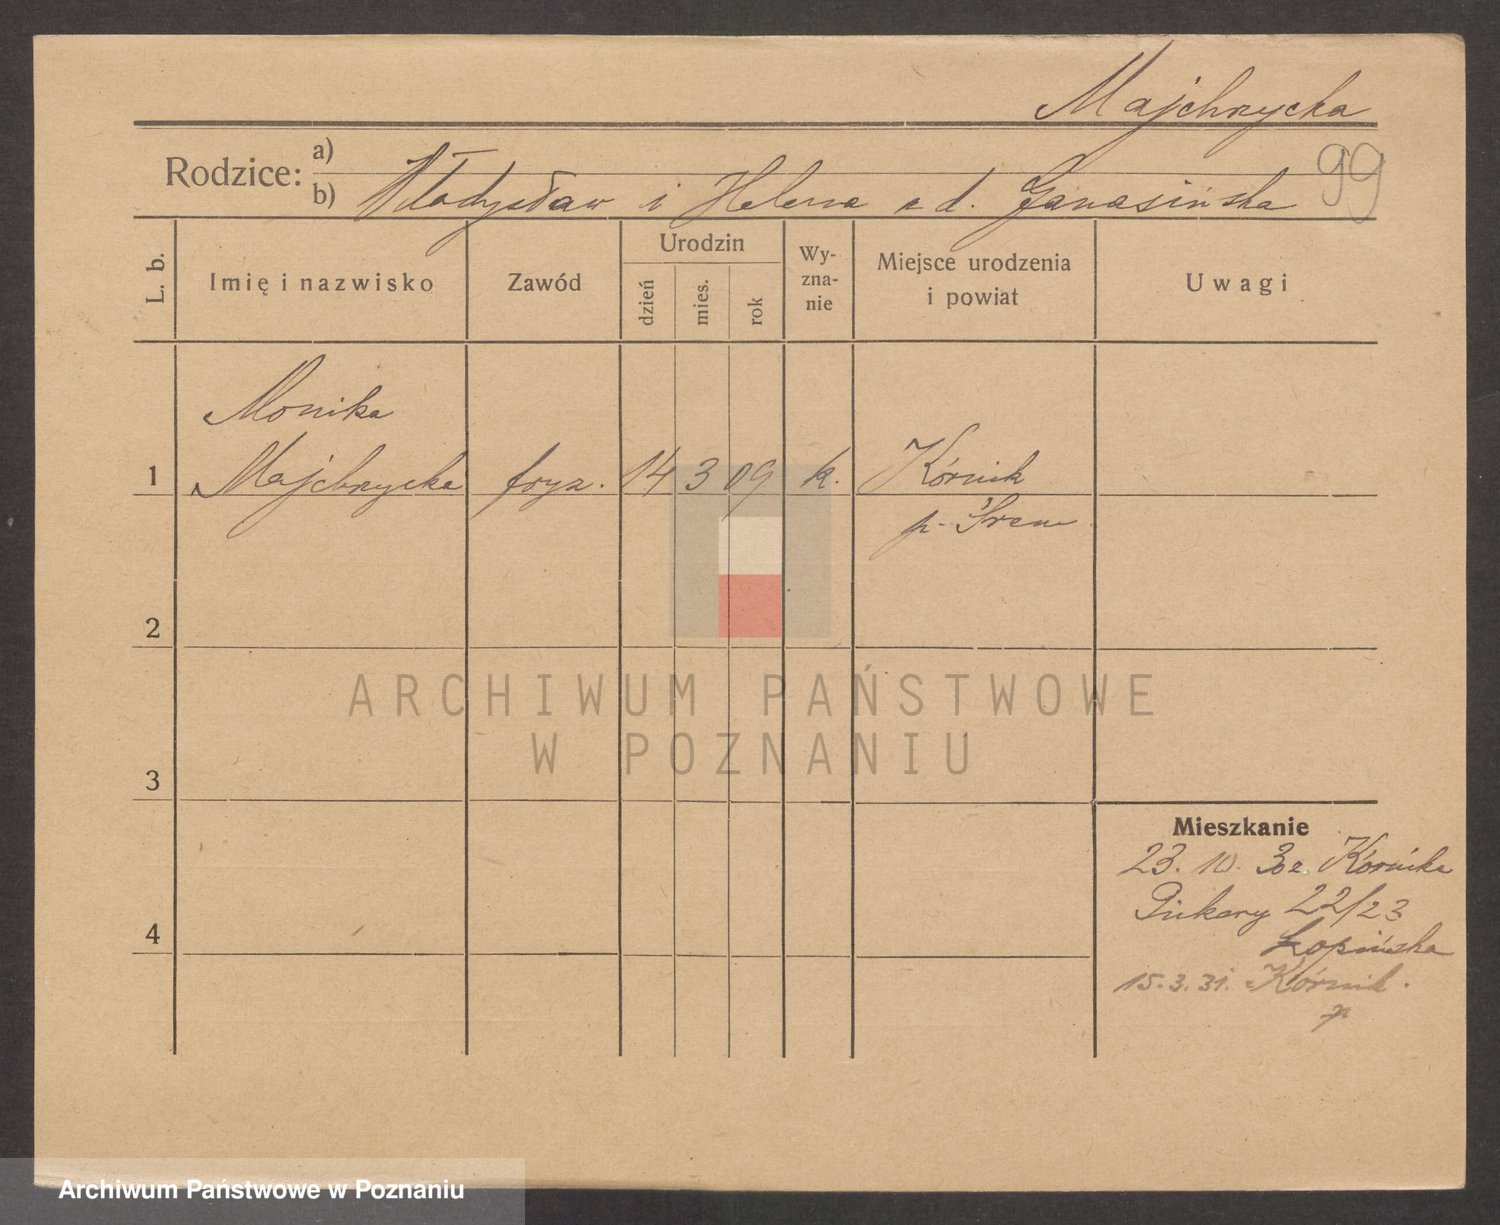 Majchrzycka
99
Rodzice: a)
b) Władysław i Helena z d. Janasińska
L. b.
Imię i nazwisko
Zawód
Urodzin
dzień
mies.
rok
Wy-
zna-
nie
Miejsce urodzenia
i powiat
Uwagi
Monika
1 Majchrzycka fryz. 14 3 09 k. Kórnik
p. Śrem
2
ARCHIWUM PAŃSTWOWE
W POZNANIU
3
Mieszkanie
23. 10. 30 z Kórnika
Piekary 22/23
4
Łopińska
15.3.31. Kórnik.
p
Archiwum Państwowe w Poznaniu